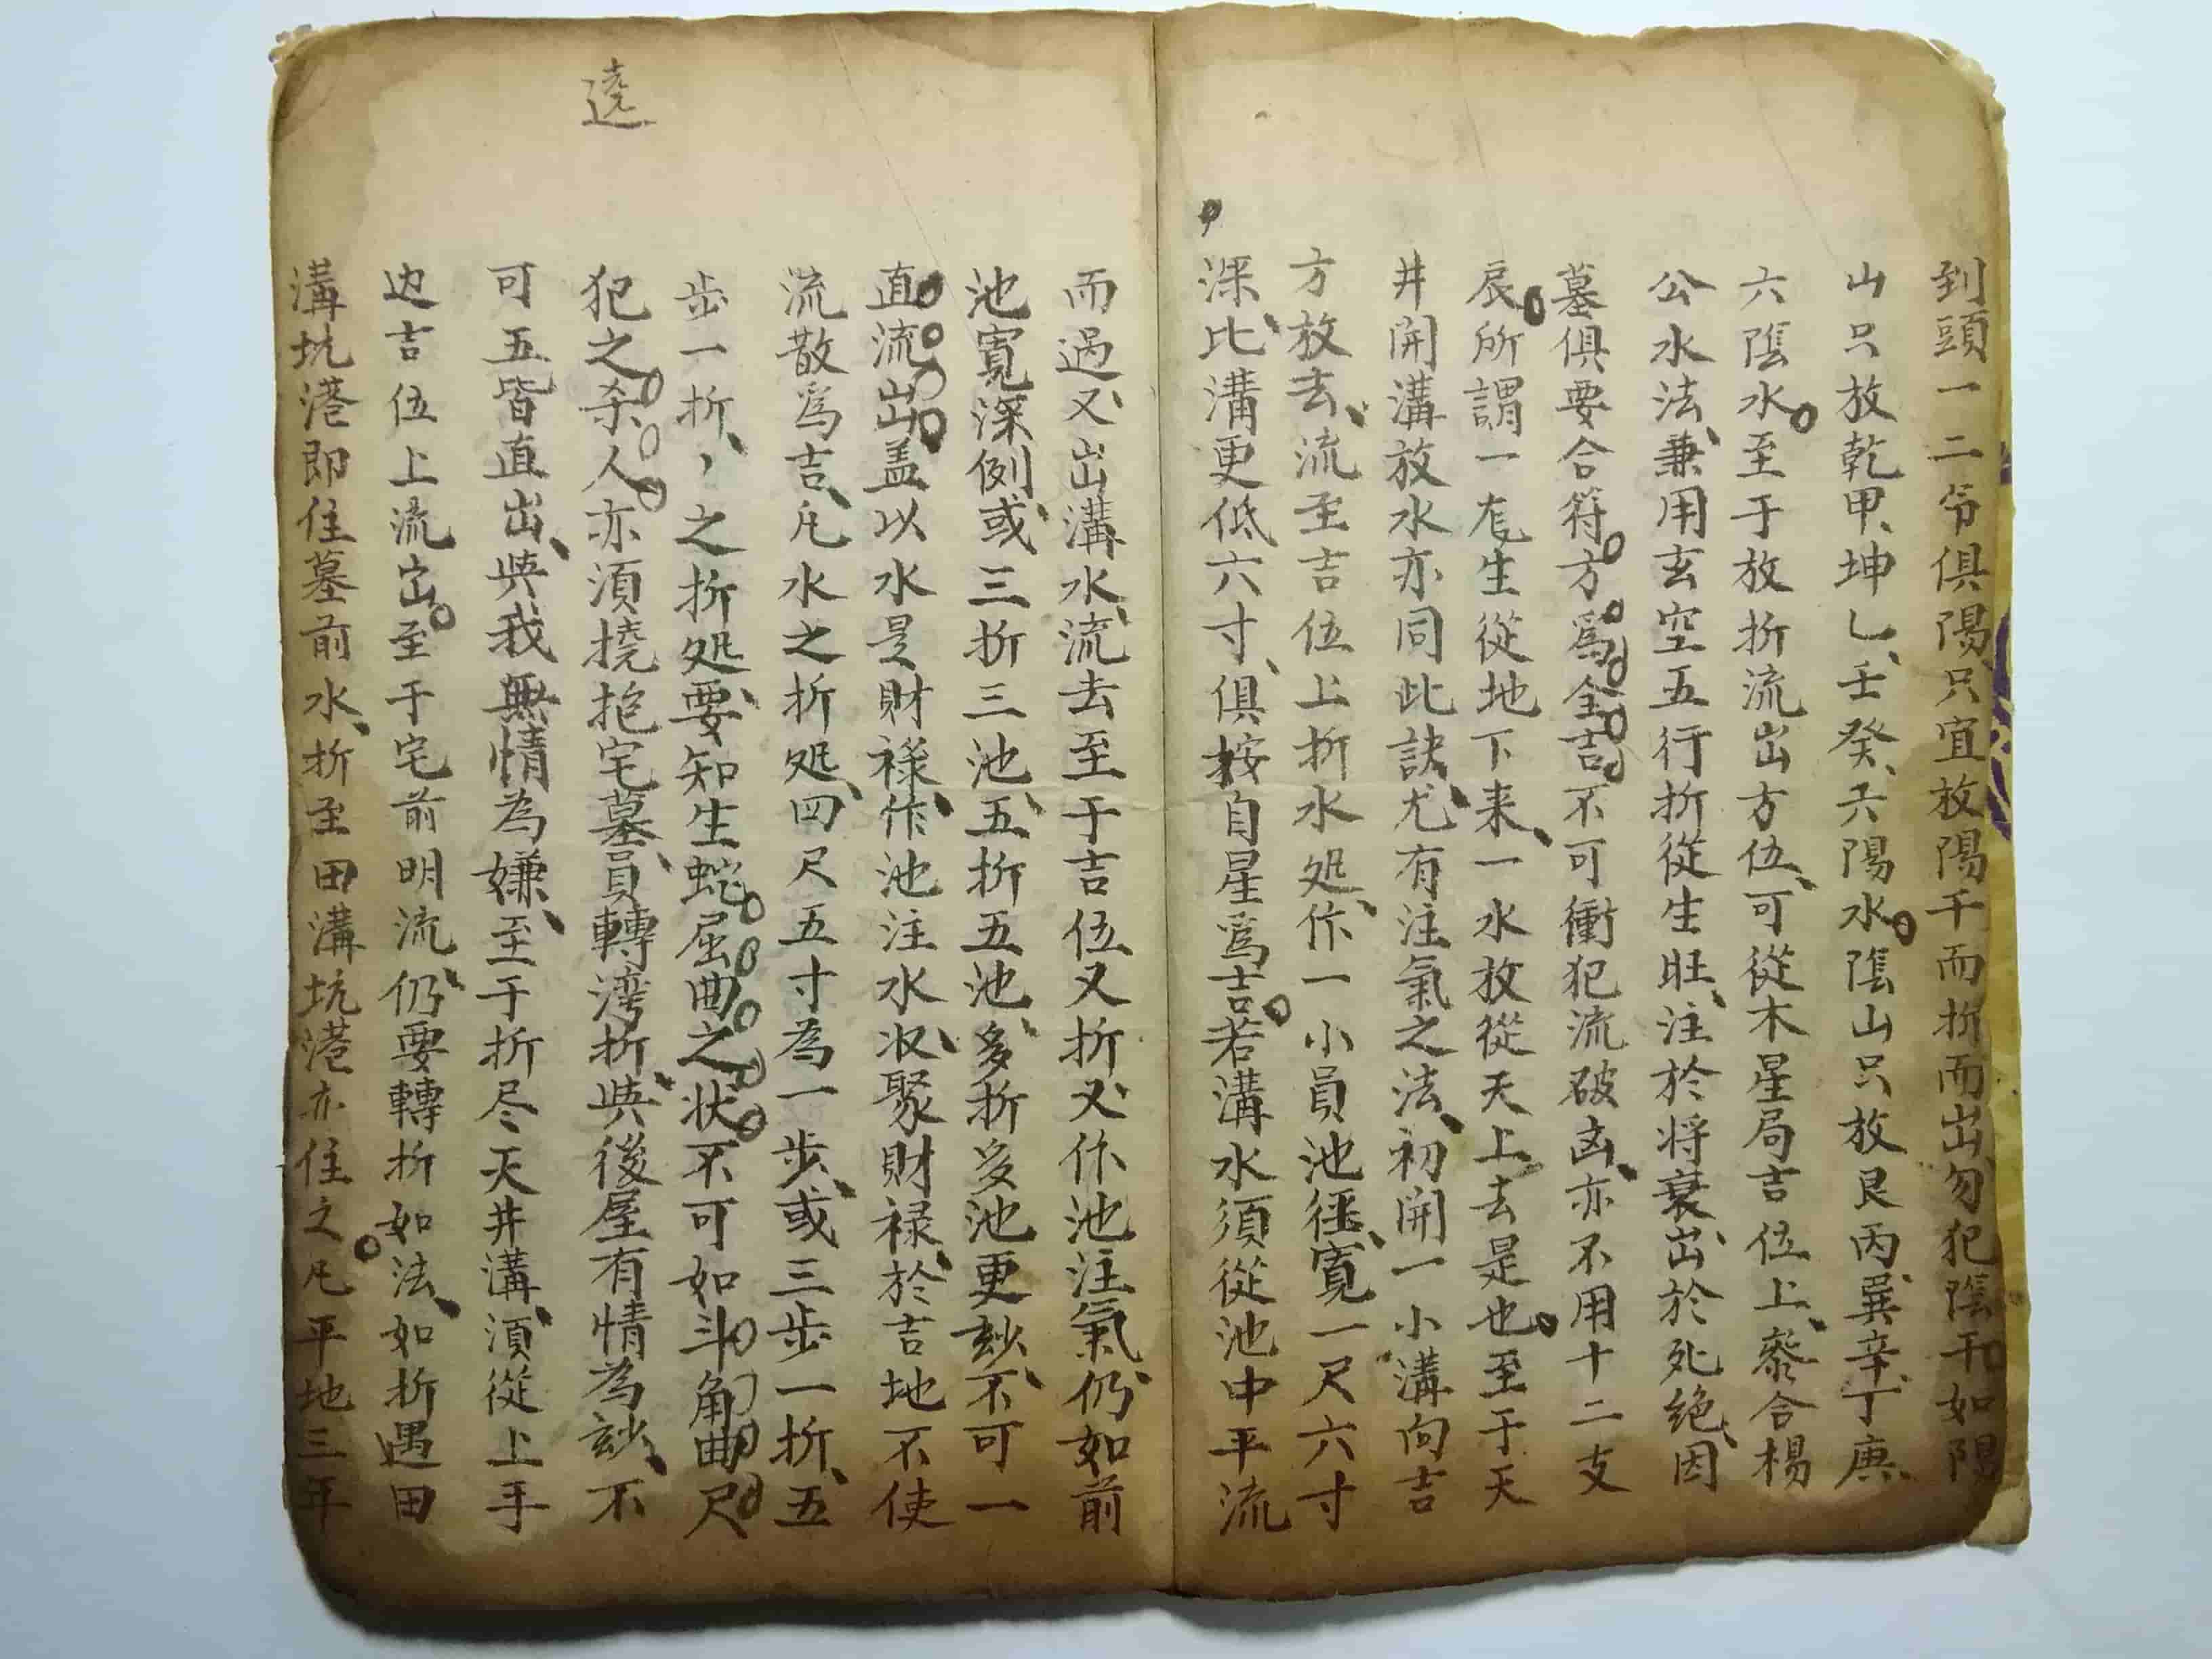 到頭一二節俱陽只宜放陽干而折而出勿犯陰干如陽
山只放乾甲坤乙壬癸六陽水陰山只放艮丙巽辛丁庚
六陰水至于放折流出方位可從木星局吉位上叅合楊
公水法兼用玄空五行折從生旺注於将衰出於死絶因
墓俱要合符方爲全吉不可衝犯流破凶亦不用十二支
辰所謂一㐳生從地下来一水放從天上去是也至于天
井開溝放水亦同此訣尤有注氣之法初開一小溝向吉
方放去流至吉位上折水処作一小員池徑寬一尺六寸
深比溝更低六寸俱按自星爲吉若溝水須從池中平流
而過又出溝水流去至于吉位又折又作池注氣仍如前
池寬深例或三折三池五折五池多折多池更玅不可一
直流出盖以水是財禄作池注水収聚財禄於吉地不使
流散爲吉凢水之折処四尺五寸為一步或三步一折五
步一折，之折処要知生蛇屈曲之状不可如斗角曲尺
犯之杀人亦須撓抱宅墓員轉湾折與後屋有情為玅不
可五皆直出與我無情為嫌至于折尽天井溝須從上手
边吉位上流出至于宅前明流仍要轉折如法如折遇田
溝坑港即住墓前水折至田溝坑港亦住之凢平地三年
遶